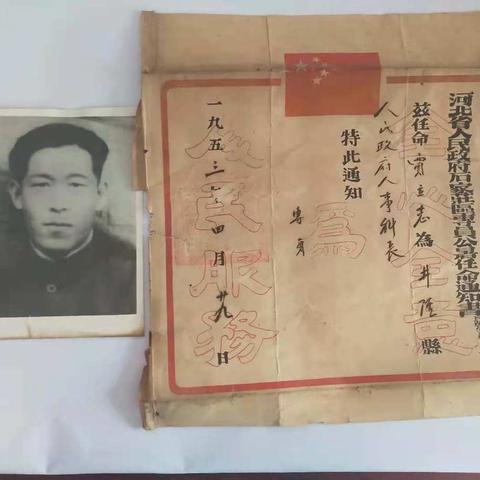 河北省人民政府石家莊區專員公署任命通知書
茲任命賈立志為井陘縣
人民政府人事科長
特此通知
專員
一九五三年四月廿九日
全心全意
為
人民服務